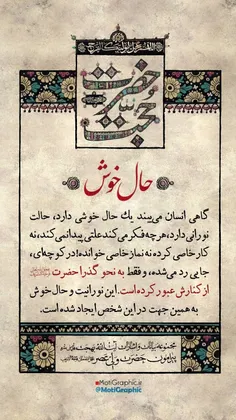 حضرت حجت
حال خوش
گاهی انسان می‌بیند یك حال خوشی دارد، حالت
نورانی دارد، هرچه فکر می‌کند علتی پیدا نمی‌کند، نه
کار خاصی کرده نه نماز خاصی خوانده! در کوچه‌ای،
جایی رد می‌شده، و فقط به نحو گذرا حضرت
از کنارش عبور کرده است. این نورانیت و حال خوش
به همین جهت در این شخص ایجاد شده است.
MotiGraphic.ir
@MotiGraphic